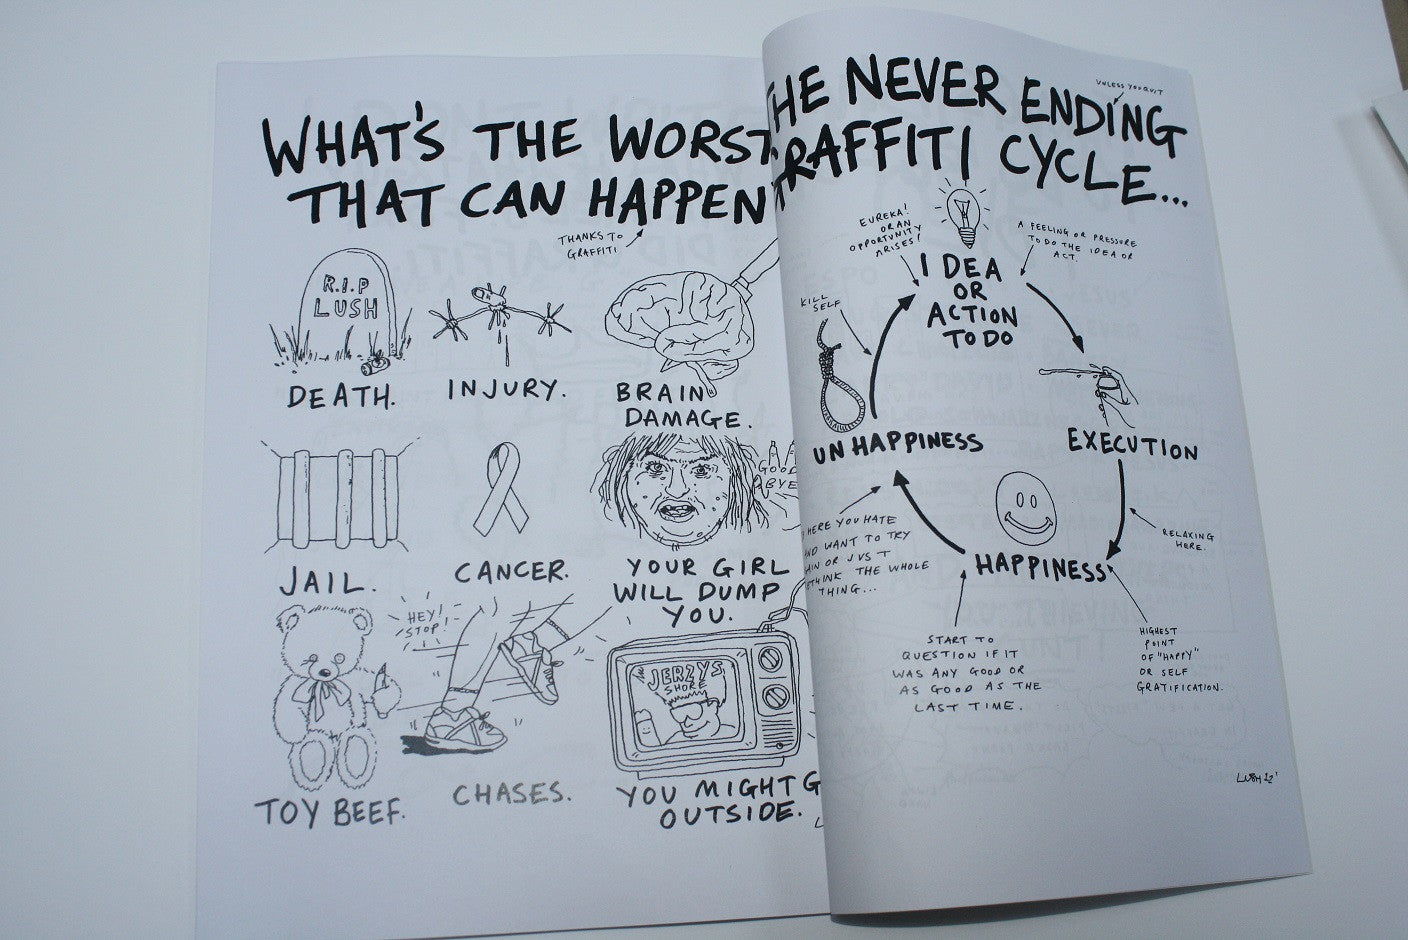 WHAT'S THE WORST
THAT CAN HAPPEN
THANKS TO
GRAFFITI
R.I.P
LUSH
DEATH.
INJURY.
BRAIN
DAMAGE.
JAIL.
CANCER.
GOOD
BYE
YOUR GIRL
WILL DUMP
YOU.
HEY!
STOP!
TOY BEEF.
CHASES.
JERZYS
SHORE
YOU MIGHT G
OUTSIDE.
THE NEVER ENDING
UNLESS YOU QUIT
GRAFFITI CYCLE...
EUREKA!
OR AN
OPPORTUNITY
ARISES!
A FEELING OR PRESSURE
TO DO THE IDEA OR
ACT.
IDEA
OR
ACTION
TO DO
KILL
SELF
UNHAPPINESS
EXECUTION
HAPPINESS
RELAXING
HERE.
HERE YOU HATE
AND WANT TO TRY
AIN OR JUST
THINK THE WHOLE
THING...
START TO
QUESTION IF IT
WAS ANY GOOD OR
AS GOOD AS THE
LAST TIME.
HIGHEST
POINT
OF "HAPPY"
OR SELF
GRATIFICATION.
LUSH 12'